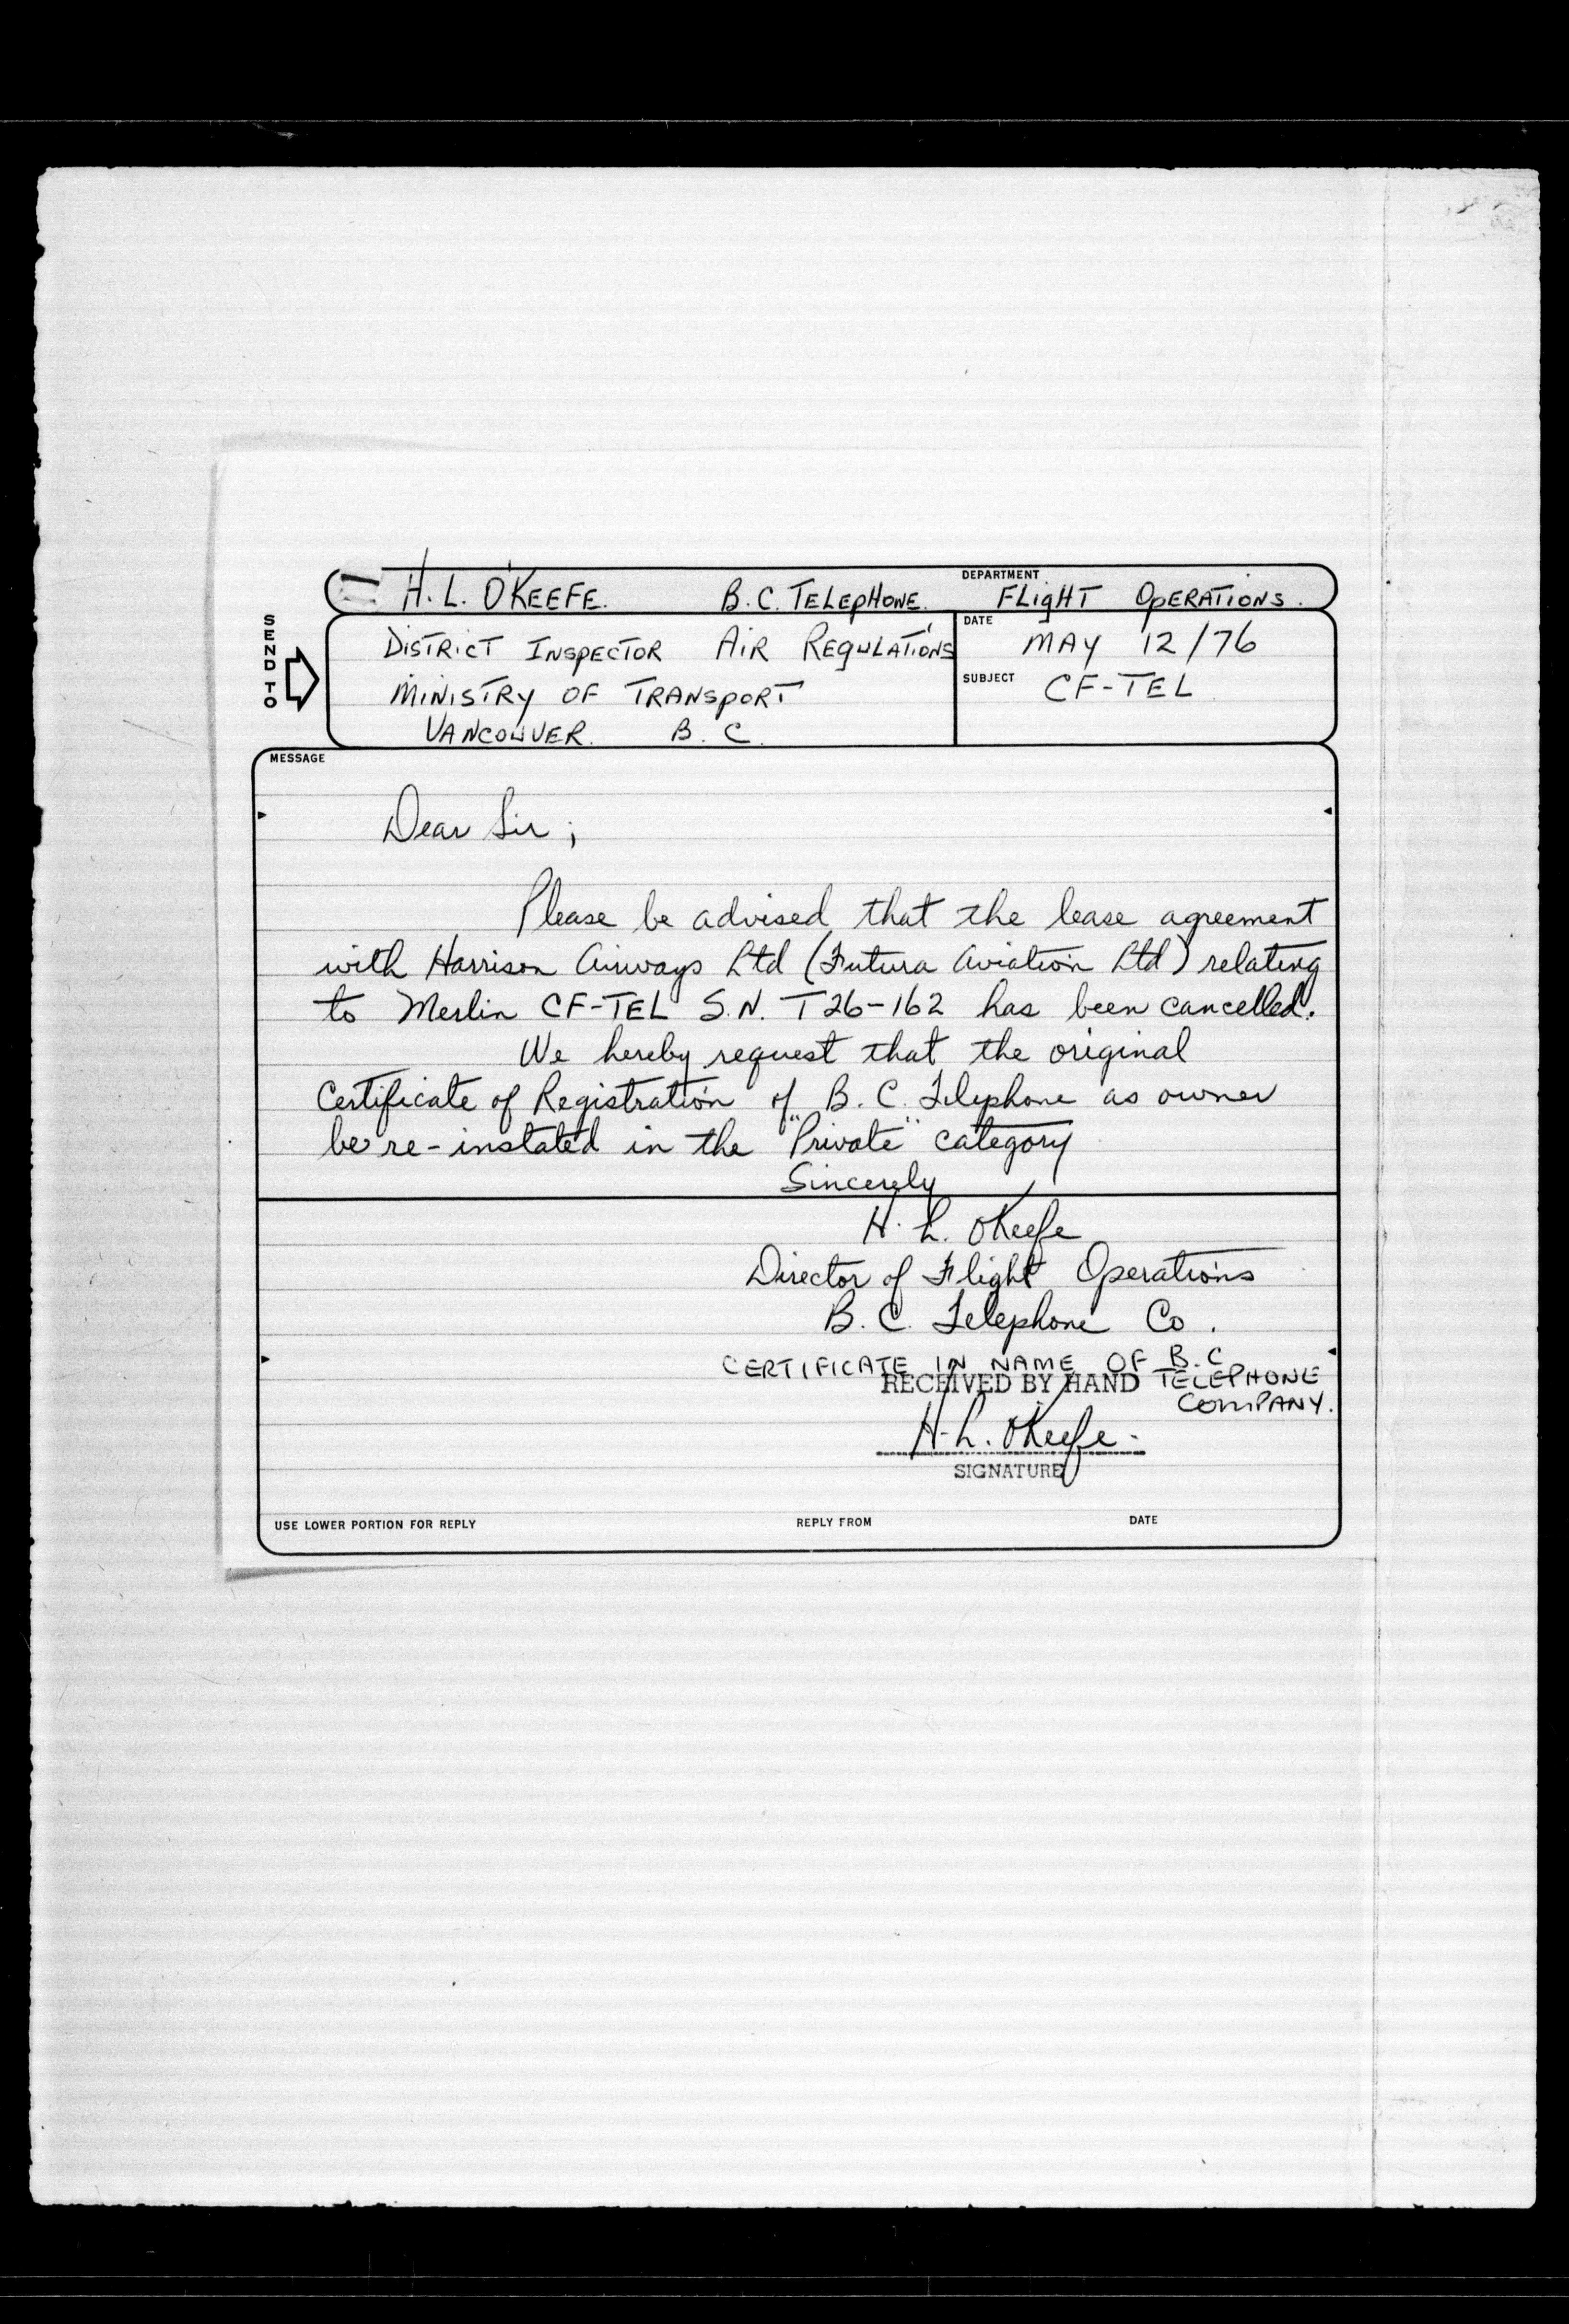 H. L. O'KEEFE. B.C. TELEPHONE. DEPARTMENT FLIGHT OPERATIONS.
SEND TO
DISTRICT INSPECTOR AIR REGULATIONS
MINISTRY OF TRANSPORT
VANCOUVER. B. C.
DATE MAY 12/76
SUBJECT CF-TEL
MESSAGE
Dear Sir;
Please be advised that the lease agreement
with Harrison Airways Ltd (Futura Aviation Ltd) relating
to Merlin CF-TEL S.N. T26-162 has been cancelled.
We hereby request that the original
Certificate of Registration of B. C. Telephone as owner
be re-instated in the "Private" category
Sincerely
H. L. O'Keefe
Director of Flight Operations
B. C. Telephone Co.
CERTIFICATE IN NAME OF B.C
TELEPHONE
COMPANY.
RECEIVED BY HAND
H. L. O'Keefe.
SIGNATURE
USE LOWER PORTION FOR REPLY REPLY FROM DATE